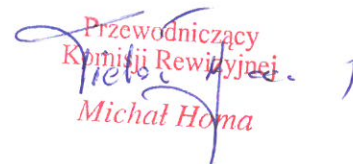 Przewodniczący
Komisji Rewizyjnej
Michał Homa